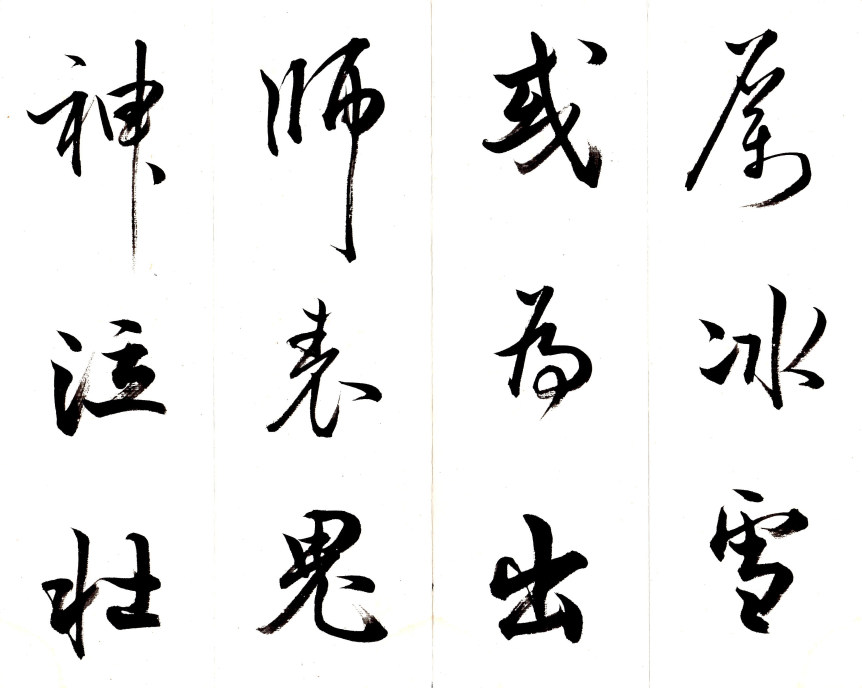 厲冰雪
或為出
師表鬼
神泣壯